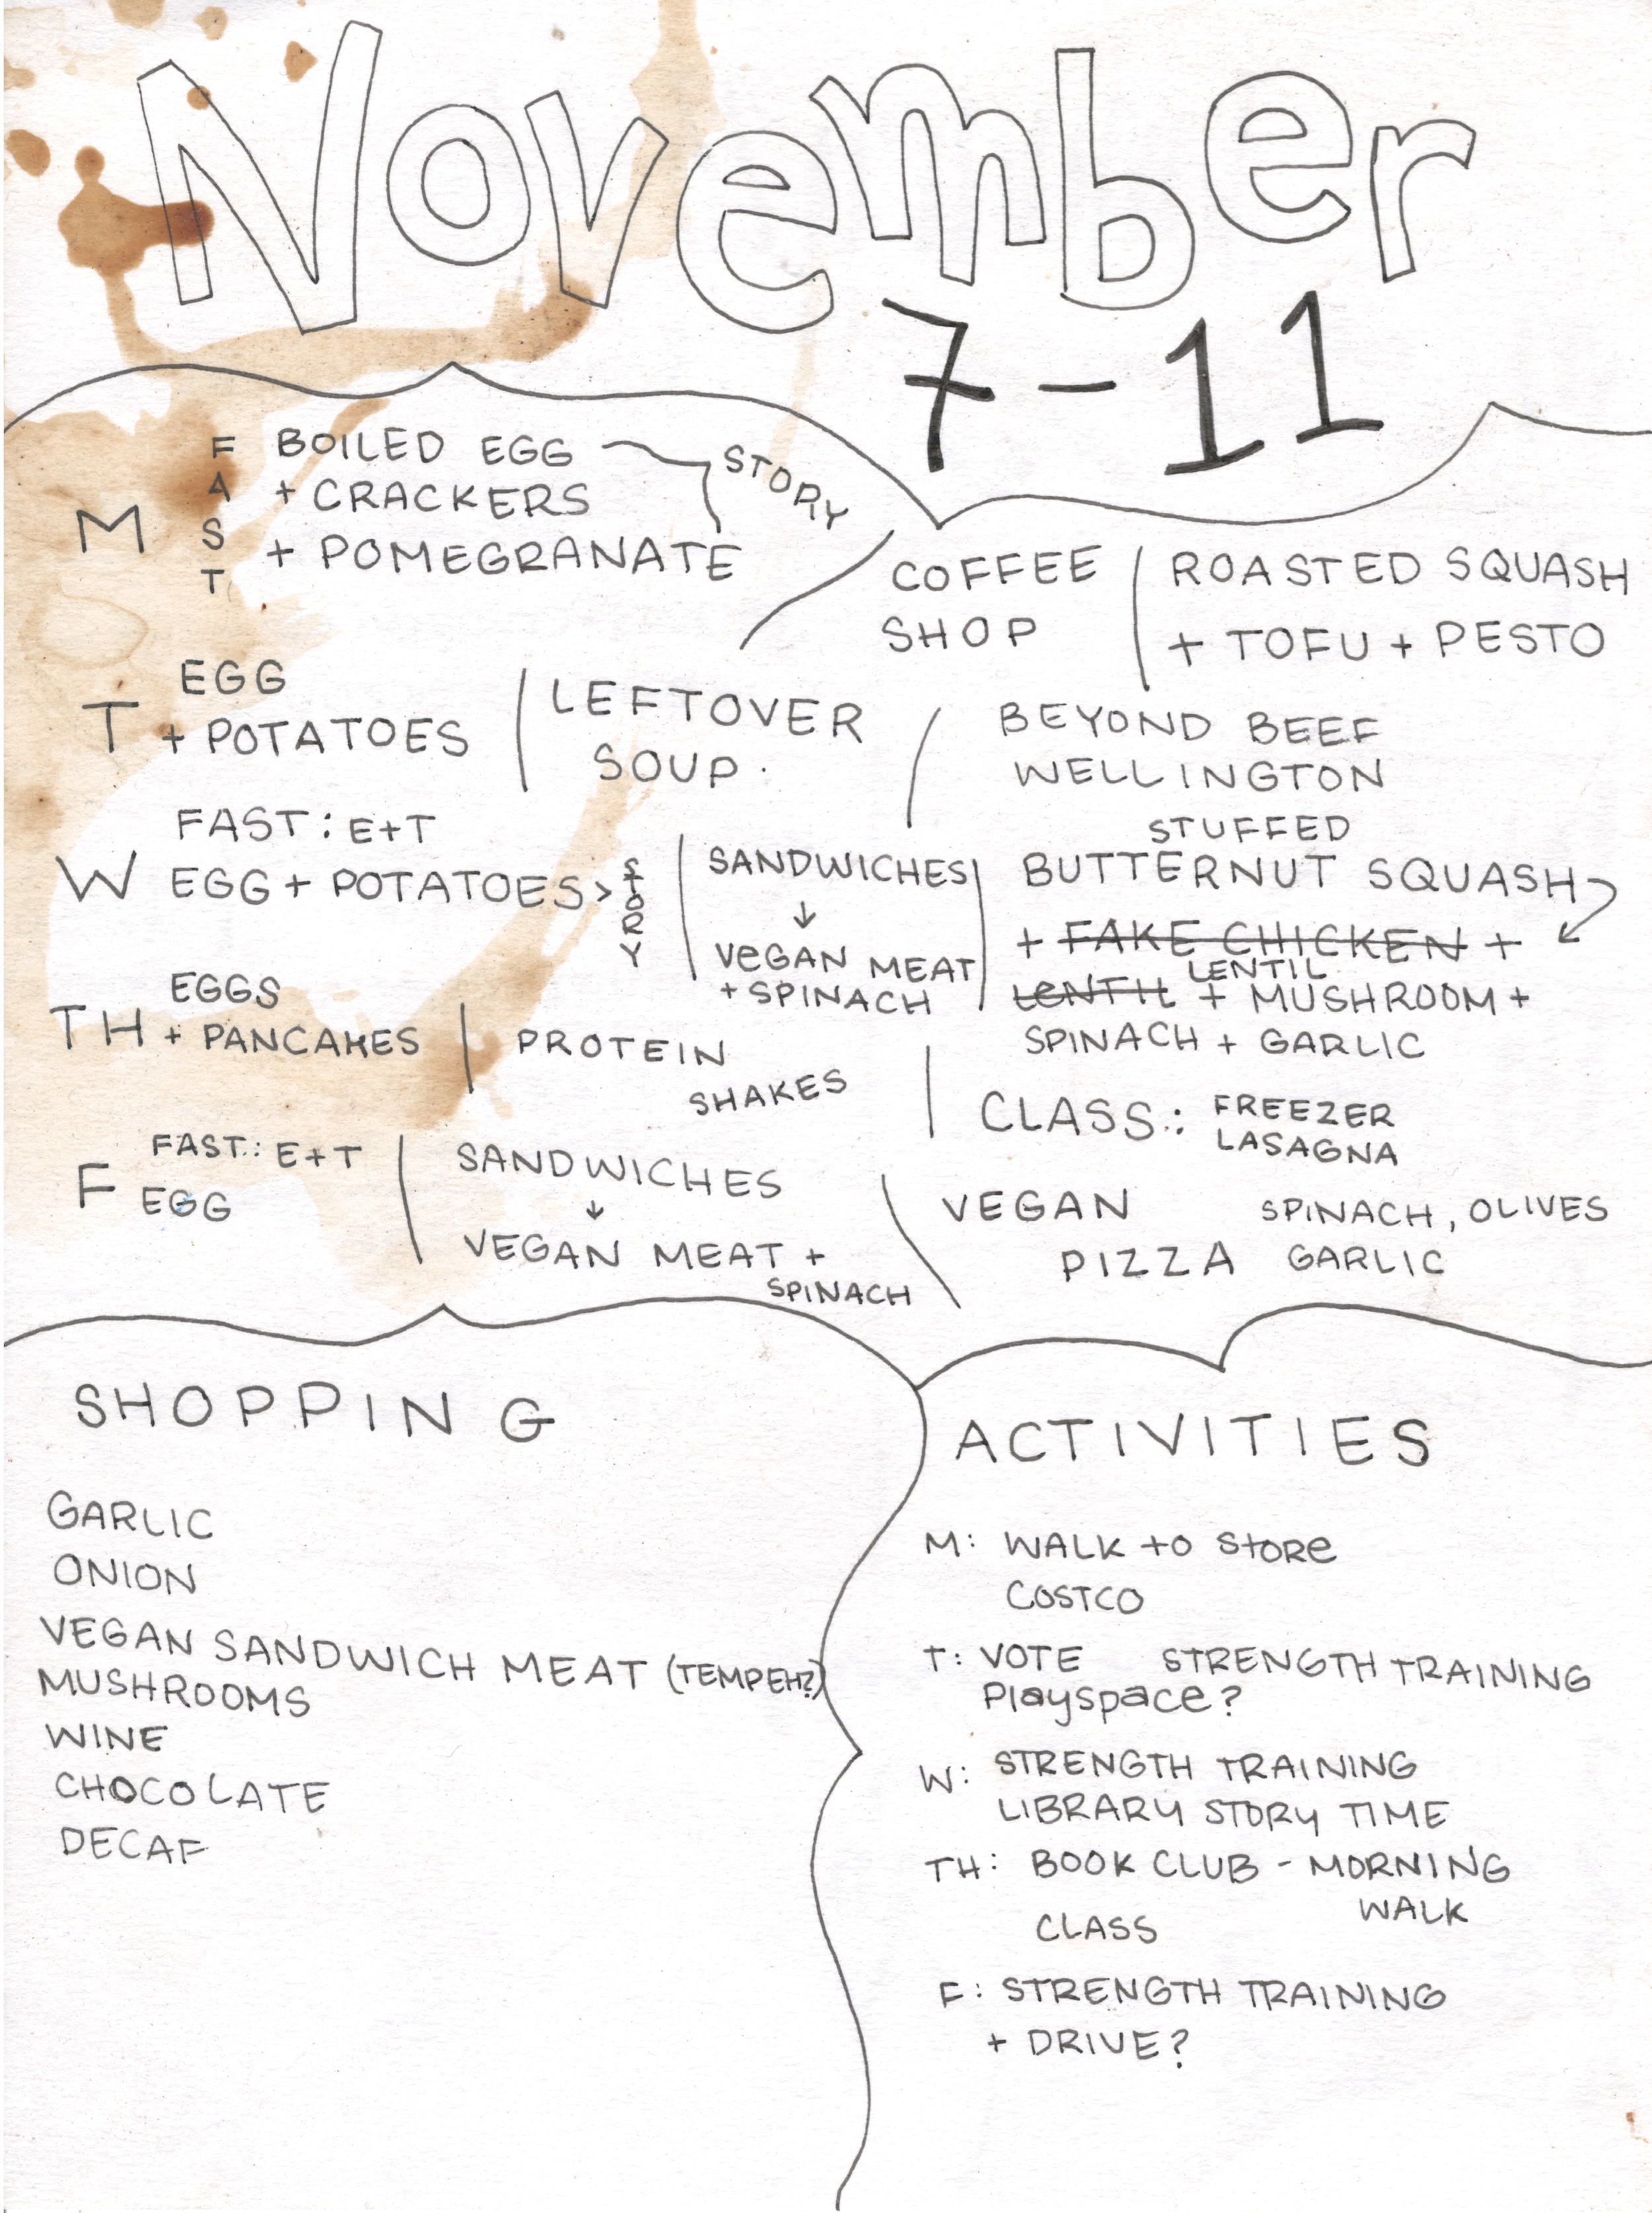 November
7-11
M
FAST
BOILED EGG
+ CRACKERS
+ POMEGRANATE
STORY
COFFEE
SHOP
ROASTED SQUASH
+ TOFU + PESTO
T
EGG
+ POTATOES
LEFTOVER
SOUP.
BEYOND BEEF
WELLINGTON
W
FAST: E+T
EGG + POTATOES >
STORY
SANDWICHES
↓
VEGAN MEAT
+ SPINACH
STUFFED
BUTTERNUT SQUASH
+ FAKE CHICKEN +
LENTIL
LENTIL + MUSHROOM +
SPINACH + GARLIC
TH
EGGS
+ PANCAKES
PROTEIN
SHAKES
CLASS: FREEZER
LASAGNA
F
FAST: E+T
EGG
SANDWICHES
↓
VEGAN MEAT +
SPINACH
VEGAN
PIZZA
SPINACH, OLIVES
GARLIC
SHOPPING
GARLIC
ONION
VEGAN SANDWICH MEAT (TEMPEH?)
MUSHROOMS
WINE
CHOCOLATE
DECAF
ACTIVITIES
M: WALK to StORe
COSTCO
T: VOTE STRENGTH TRAINING
Playspace?
W: STRENGTH TRAINING
LIBRARY STORY TIME
TH: BOOK CLUB - MORNING
WALK
CLASS
F: STRENGTH TRAINING
+ DRIVE?